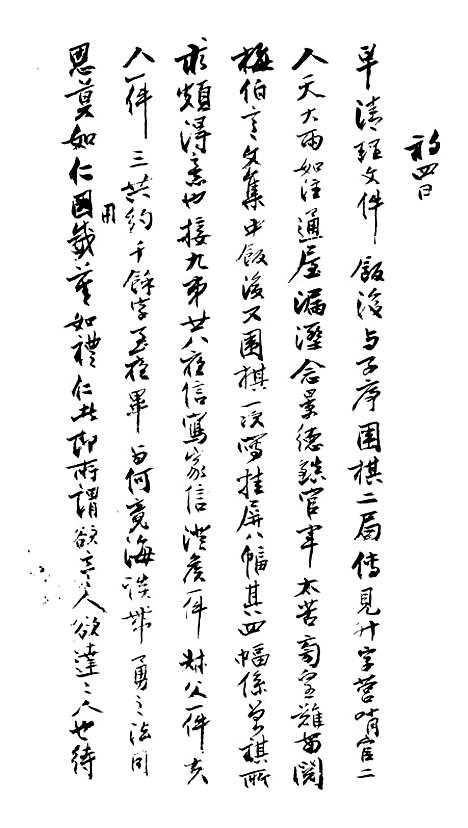 初四日
早清理文件飯後与子序围棋二局傳見升字营哨官二
人天大雨如注通屋漏溼念景德鎮官軍太苦 難 閱
梅伯言文集中飯後又围棋一次寫挂屏八幅其四幅係 棋所
求頗得意也接九弟廿八夜信寫家信澄侯一件 叔父一件 夫
人一件 三共約千餘字至夜畢 与何竟海談帶勇之法用
恩莫如仁用威莫如禮仁者即所謂欲立立人欲達達人也待